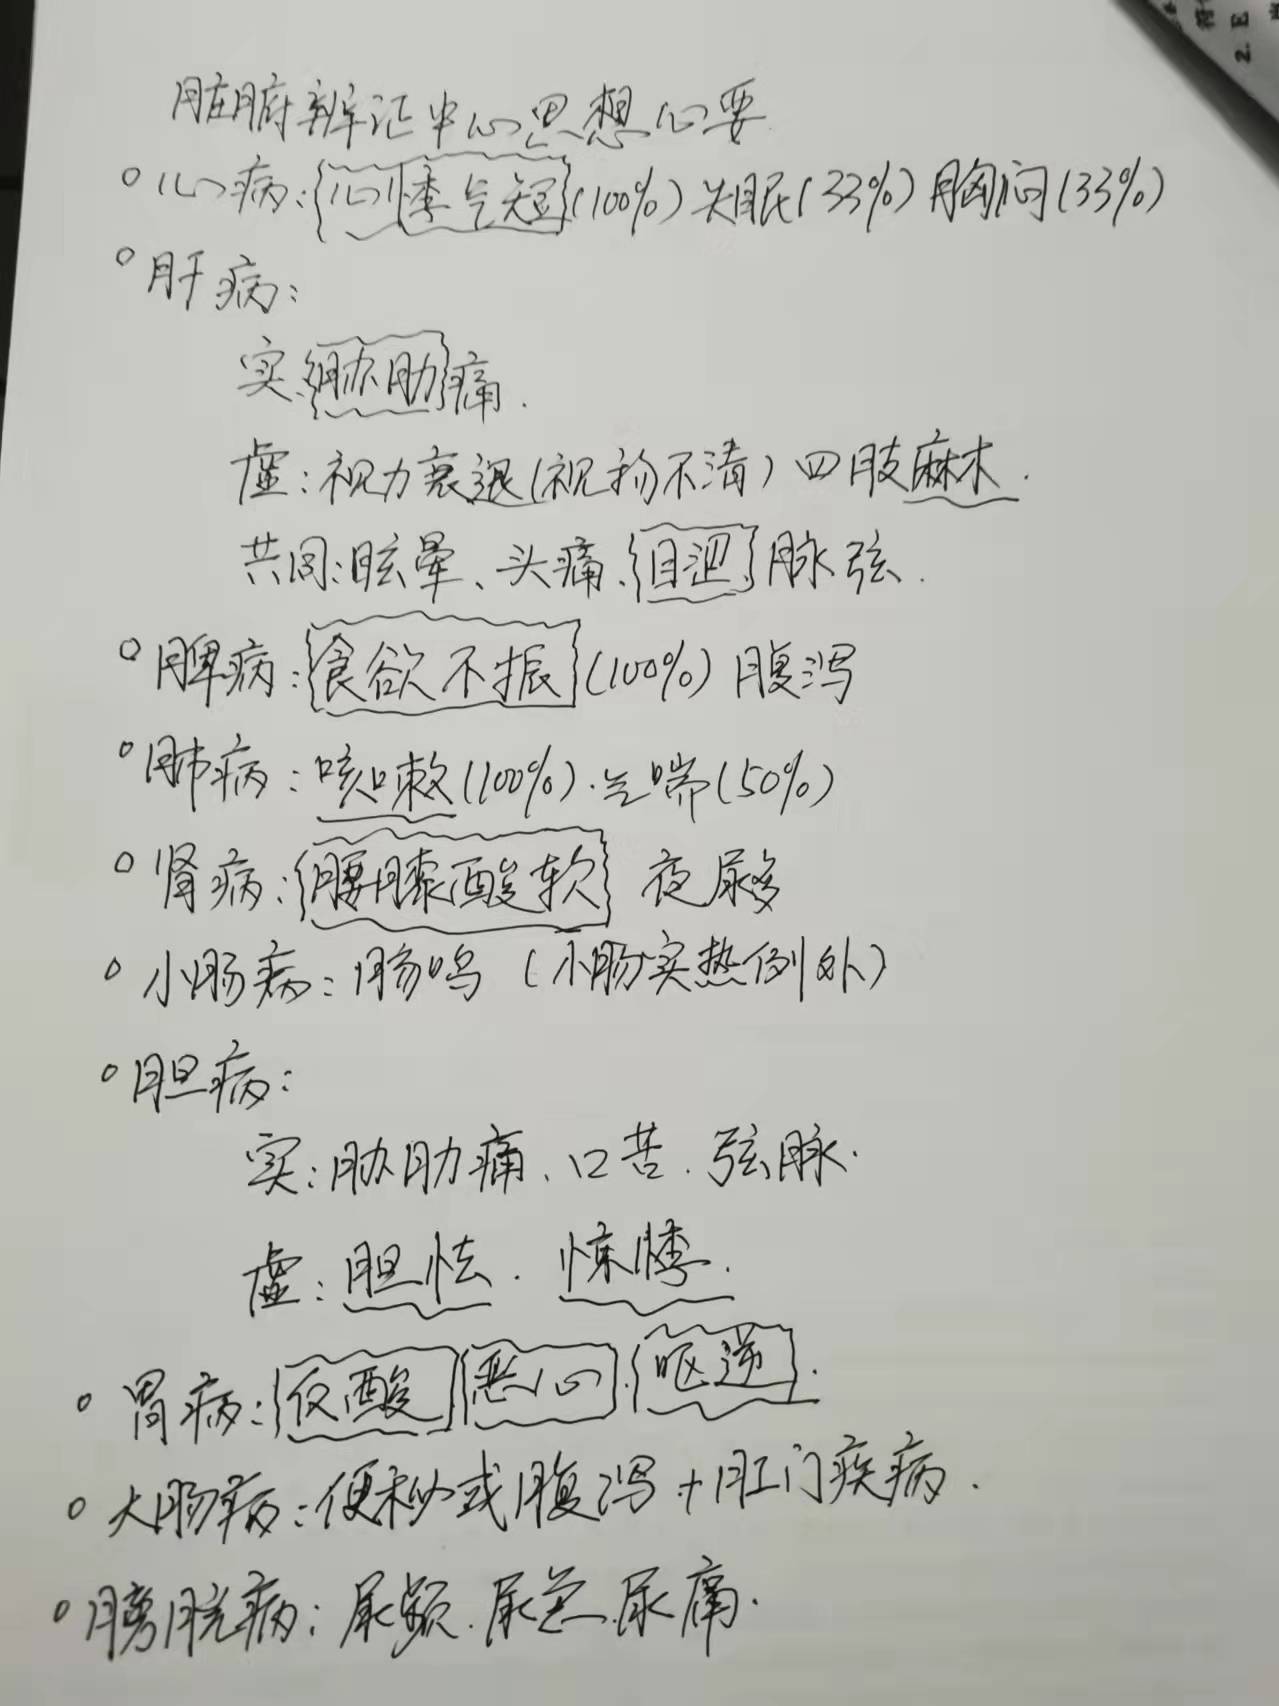 脏腑辨证中心思想心要
心病:心悸气短(100%)失眠(33%)胸闷(33%)
肝病:
实:胁肋痛.
虚:视力衰退(视物不清)四肢麻木.
共同:眩晕、头痛、目涩、脉弦.
脾病:食欲不振(100%)腹泻
肺病:咳嗽(100%).气喘(50%)
肾病:腰膝酸软 夜尿多
小肠病:肠鸣(小肠实热例外)
胆病:
实:胁肋痛、口苦.弦脉.
虚:胆怯.惊悸.
胃病:反酸 恶心.呕逆.
大肠病:便秘或腹泻+肛门疾病.
膀胱病:尿频.尿急.尿痛.
2. E